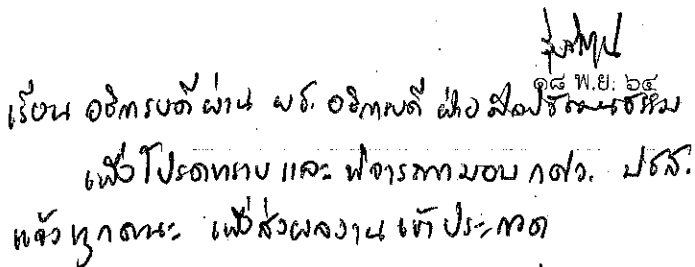 ๑๘ พ.ย. ๖๔
เรียน อธิการบดี ผ่าน ผช. อธิการบดี ฝ่ายศิลปวัฒนธรรม
เพื่อโปรดทราบ และพิจารณามอบ กศว. ปชส.
แจ้งทุกคณะ เพื่อส่งผลงานเข้าประกวด